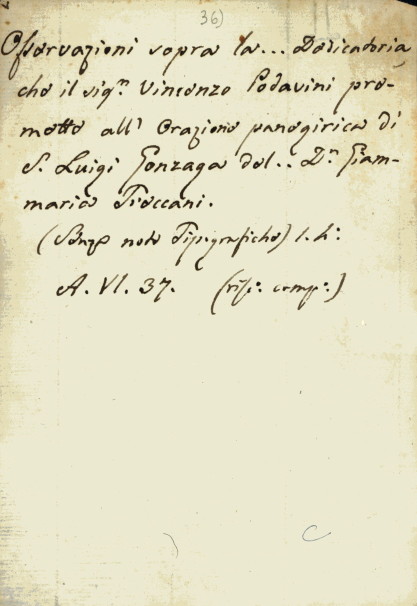 36)
Osservazioni sopra la... Dedicadoria
che il sigr. Vincenzo Podavini pro-
mette all' Orazione panegirica di
S. Luigi Gonzaga del.. Dn. Giam-
maria Treccani.
(Senze note Tipografiche) l. h:
A. VI. 37. (rife: comp:)